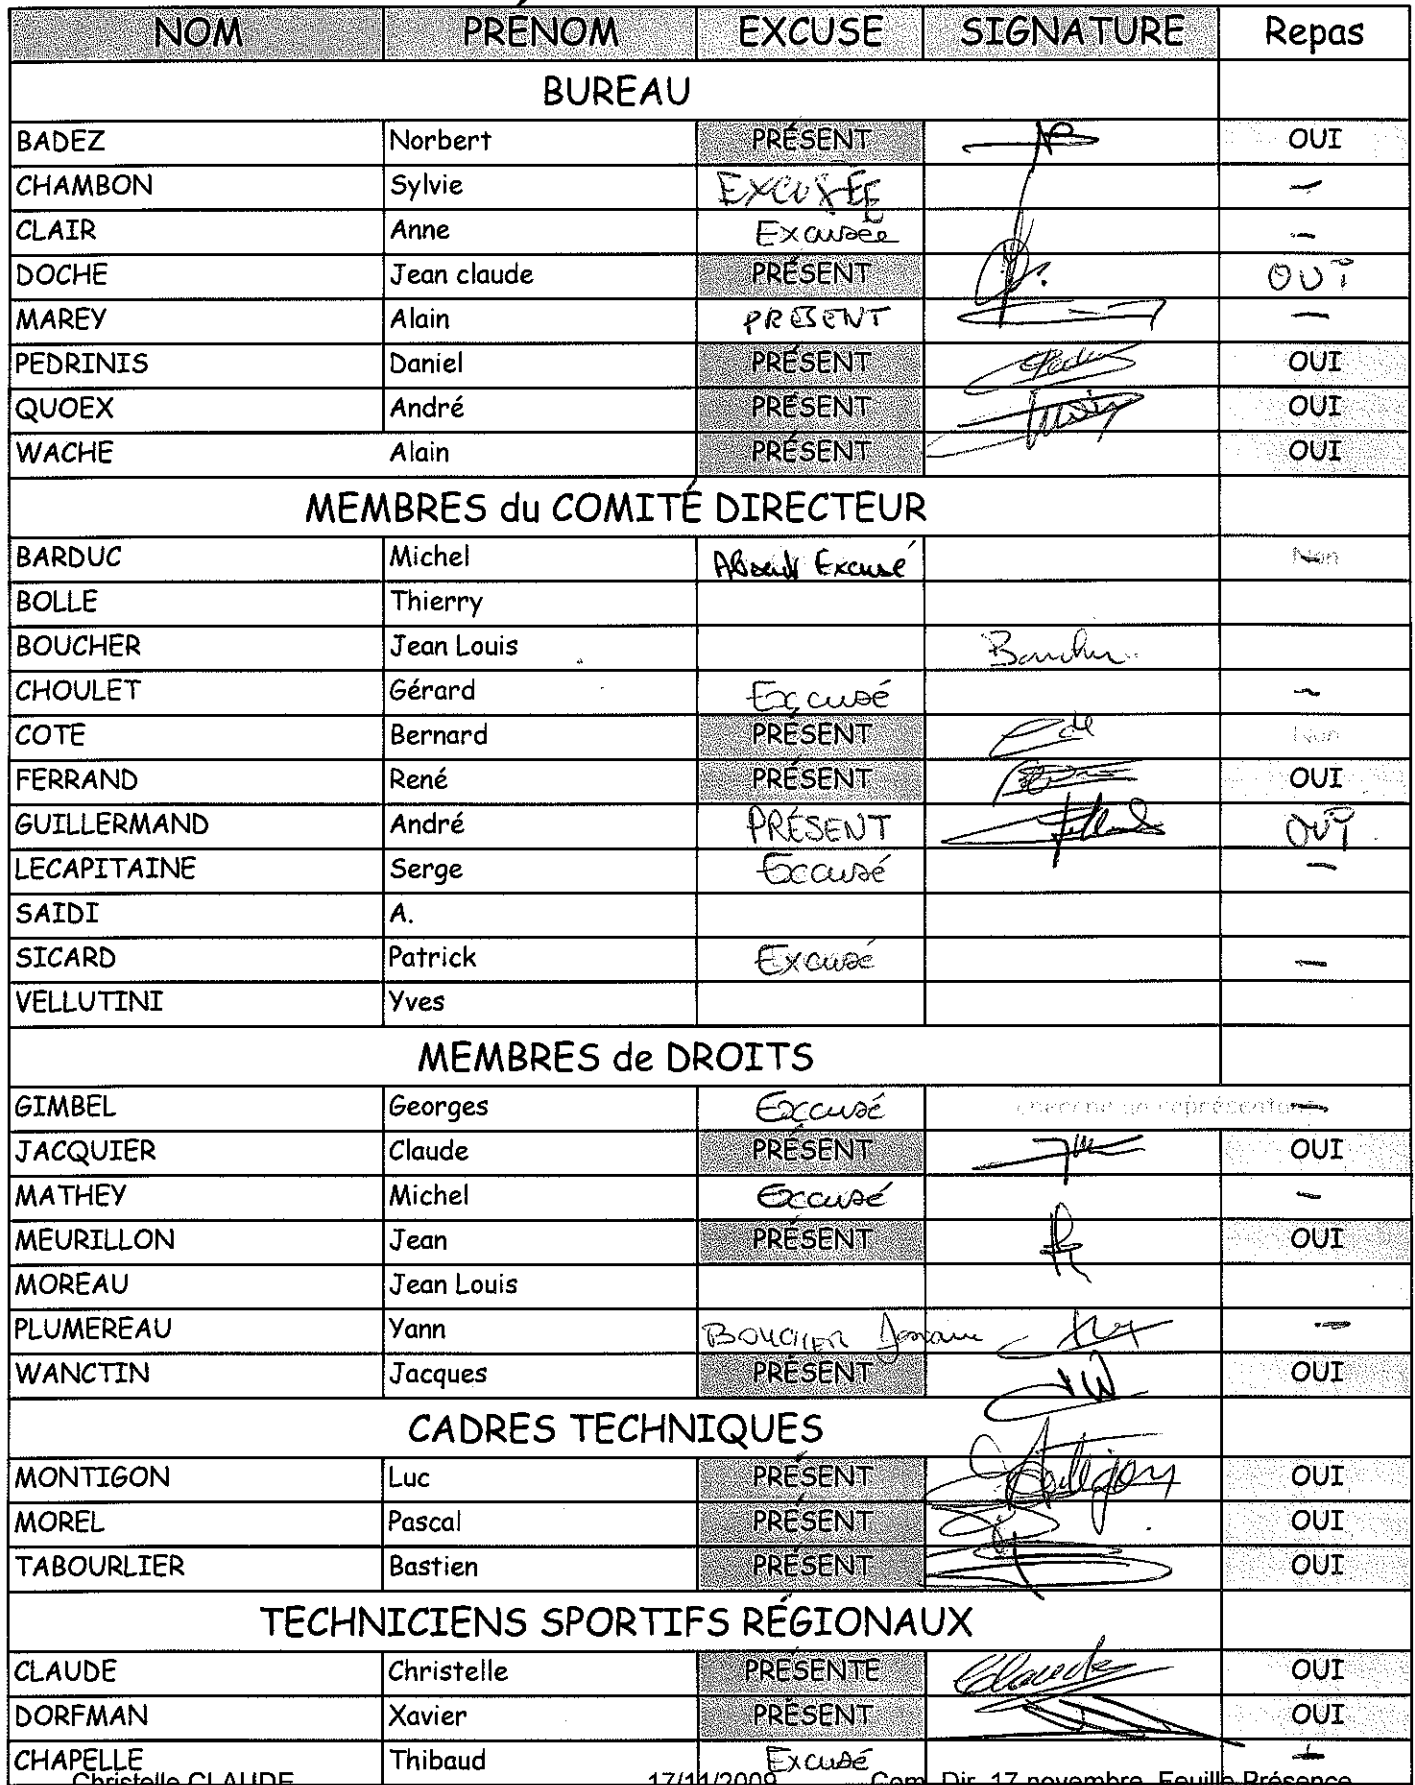 NOM PRÉNOM EXCUSE SIGNATURE Repas
BUREAU
BADEZ Norbert PRÉSENT OUI
CHAMBON Sylvie EXCUSÉE –
CLAIR Anne Excusée –
DOCHE Jean claude PRÉSENT OUI
MAREY Alain PRESENT –
PEDRINIS Daniel PRÉSENT OUI
QUOEX André PRÉSENT OUI
WACHE Alain PRÉSENT OUI
MEMBRES du COMITÉ DIRECTEUR
BARDUC Michel Absent Excusé Non
BOLLE Thierry
BOUCHER Jean Louis Boucher
CHOULET Gérard Excusé –
COTE Bernard PRÉSENT Non
FERRAND René PRÉSENT OUI
GUILLERMAND André PRÉSENT OUI
LECAPITAINE Serge Excusé –
SAIDI A.
SICARD Patrick Excusé –
VELLUTINI Yves
MEMBRES de DROITS
GIMBEL Georges Excusé cherche un représentant –
JACQUIER Claude PRÉSENT OUI
MATHEY Michel Excusé –
MEURILLON Jean PRÉSENT OUI
MOREAU Jean Louis
PLUMEREAU Yann –
WANCTIN Jacques PRÉSENT OUI
CADRES TECHNIQUES
MONTIGON Luc PRÉSENT OUI
MOREL Pascal PRÉSENT OUI
TABOURLIER Bastien PRÉSENT OUI
TECHNICIENS SPORTIFS RÉGIONAUX
CLAUDE Christelle PRÉSENTE Claude OUI
DORFMAN Xavier PRÉSENT OUI
CHAPELLE Thibaud Excusé –
Christelle CLAUDE 17/11/2009 Com Dir 17 novembre Feuille Présence